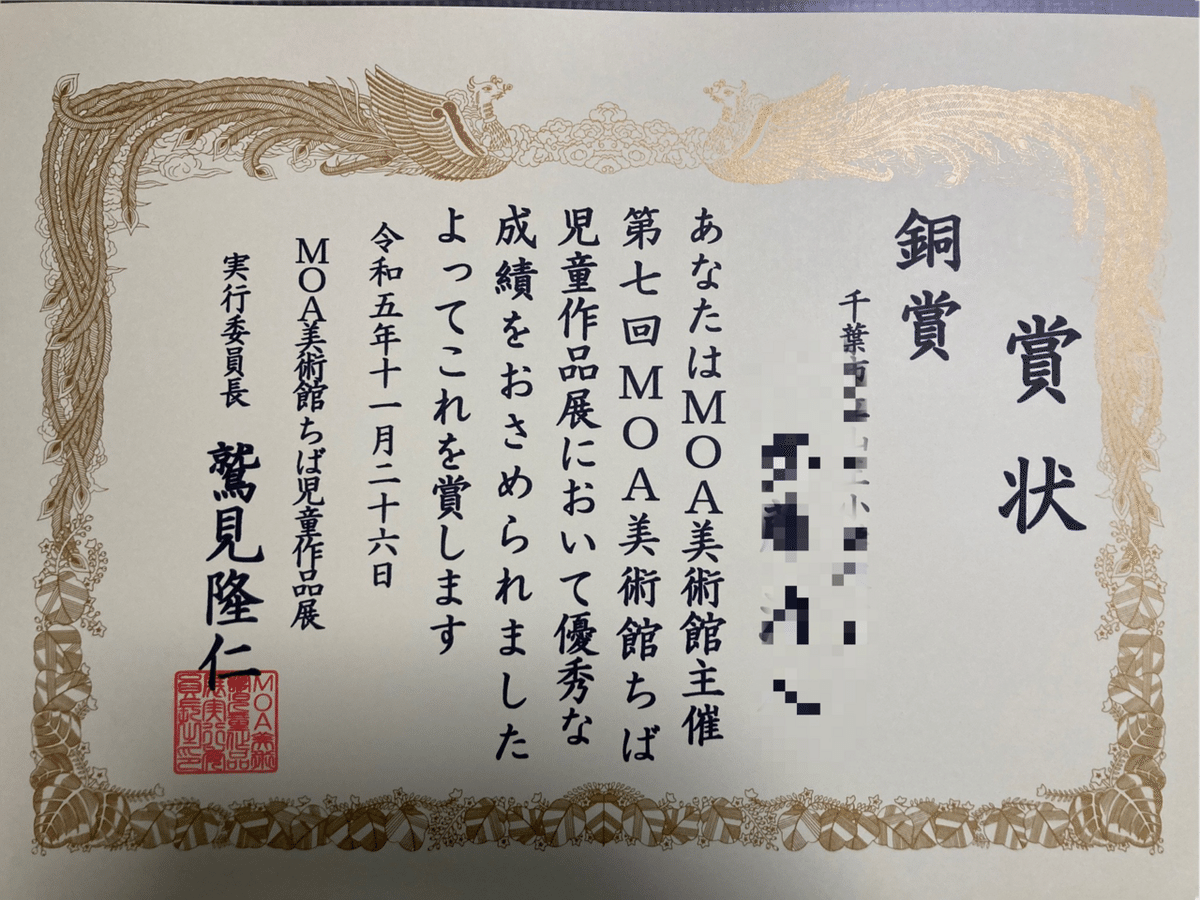 賞状
銅賞
千葉市
あなたはMOA美術館主催
第七回MOA美術館ちば
児童作品展において優秀な
成績をおさめられました
よってこれを賞します
令和五年十一月二十六日
MOA美術館ちば児童作品展
実行委員長 鷲見隆仁